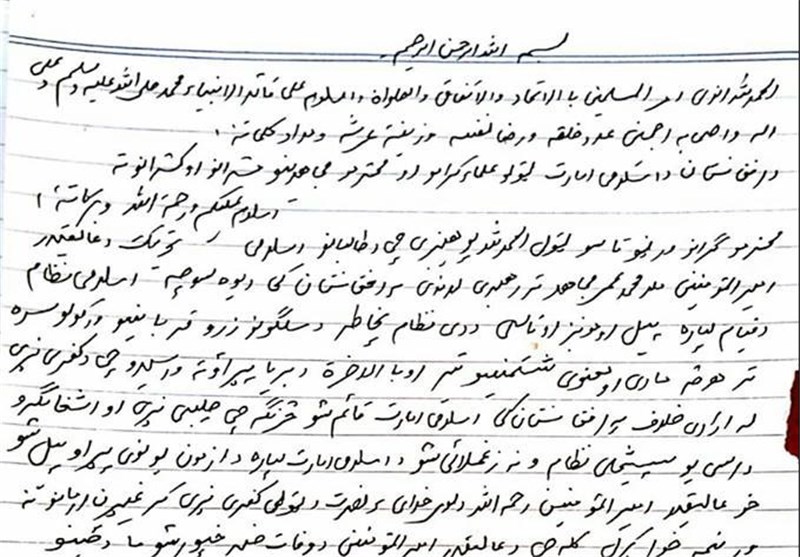 بسم الله الرحمن الرحیم
الحمدلله الذی امر المسلمین با الاتحاد والاتفاق والصلواة والسلام علی قائد الانبیاء محمد صلی الله علیه وسلم وعلی
اله واصحابه اجمعین عدد خلقه ورضا نفسه وزینة عرشه ومداد کلماته
دافغانستان داسلامی امارت ټولو علماء کرامو او محترمو مجاهدینو مشرانو اوکشرانو ته
اسلام علیکم ورحمة الله وبرکاته
محترمو ګرانو مدنیو تاسو ټول الحمدلله پوهیږی چی دطالبانو اسلامی تحریک دعالیقدر
امیرالمومنین ملا محمد عمر مجاهد تر رهبری لاندی په افغانستان کی دیوه سوچه اسلامی نظام
دقیام لپاره پیل او موږ او تاسی ددی نظام په خاطر دسلګونو زرو قربانیو ورکولو سره
تر هرڅه مادی او معنوی او با الاخرة دبریا پړاو ته ورسیدو چی دکفری نړی
له ارادی خلاف په افغانستان کی اسلامی امارت قائم شو څرنګه چی صلیبی نړی او اشغالګرو
داسی یو نظام ونه زغملائی شو داسلامی امارت لپاره دازمون یو نوی پړاو پیل شو
خو عالیقدر امیرالمومنین رحمه الله دلوی خدای په نصرت دټولی کفری نړی
کله چی دعالیقدر امیرالمومنین دوفات خبر خپور شو